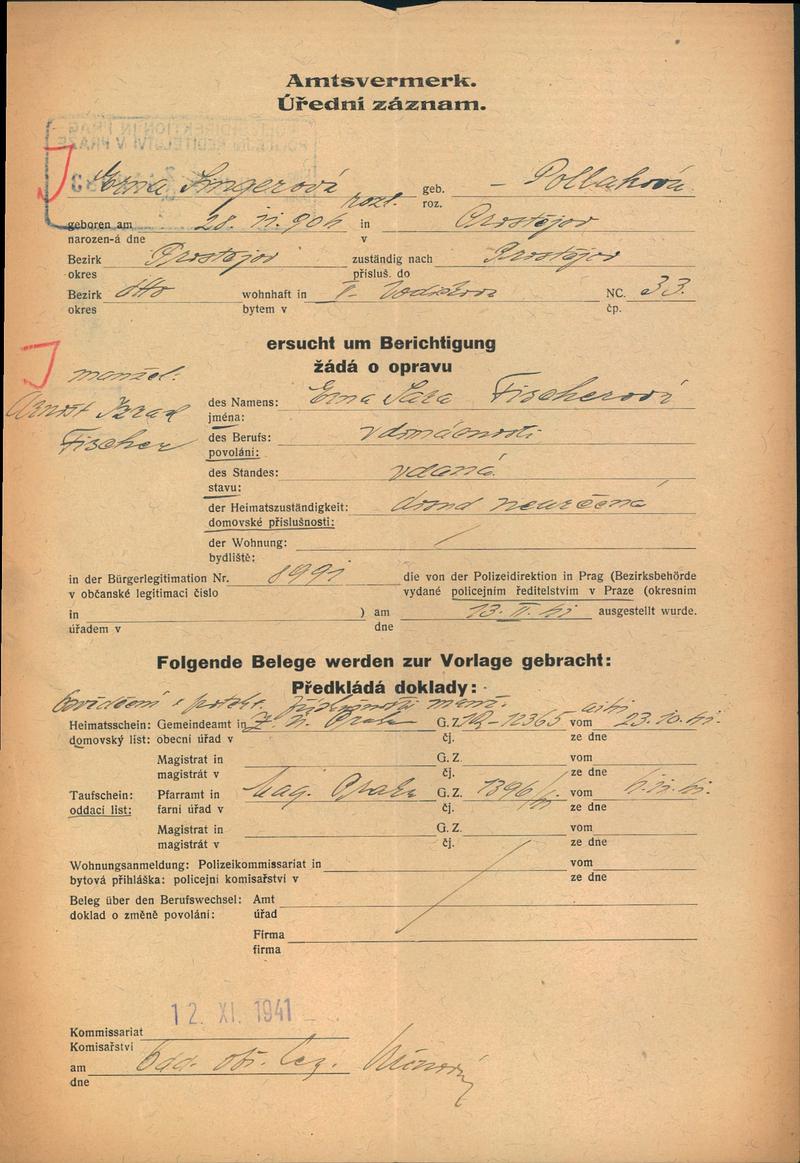 Amtsvermerk.
Úřední záznam.
POLIZEIDIREKTION IN PRAG
POLICEJNÍ ŘEDITELSTVÍ V PRAZE
J
Erna Singerová rozl. geb. – Pollaková
roz.
geboren am 28. II. 904 in Prostějov
narozen-á dne v
Bezirk Prostějov zuständig nach Prostějov
okres přísluš. do
Bezirk otto wohnhaft in II. Vodičkova NC. 33.
okres bytem v čp.
ersucht um Berichtigung
žádá o opravu
J
manžel:
Arnošt Israel
Fischer
des Namens: Erna Sara Fischerová
jména:
des Berufs: v domácnosti
povolání:
des Standes: vdaná
stavu:
der Heimatszuständigkeit: dosud neurčena
domovské příslušnosti:
der Wohnung: /
bydliště:
in der Bürgerlegitimation Nr. 8991 die von der Polizeidirektion in Prag (Bezirksbehörde
v občanské legitimaci číslo vydané policejním ředitelstvím v Praze (okresním
in ) am 13. II. 41 ausgestellt wurde.
úřadem v dne
Folgende Belege werden zur Vorlage gebracht:
Předkládá doklady:
Heimatsschein: Gemeindeamt in Z. ú. Praha G. Z. 12365 vom 23. 10. 41.
domovský list: obecní úřad v čj. ze dne
Magistrat in G. Z. vom
magistrát v čj. ze dne
Taufschein: Pfarramt in Mag. Praha G. Z. 1396/41 vom
oddací list: farní úřad v čj. ze dne
Magistrat in G. Z. vom
magistrát v čj. ze dne
Wohnungsanmeldung: Polizeikommissariat in vom
bytová přihláška: policejní komisařství v ze dne
Beleg über den Berufswechsel: Amt
doklad o změně povolání: úřad
Firma
firma
12. XI. 1941
Kommissariat
Komisařství
am Odd. obč. leg.
dne